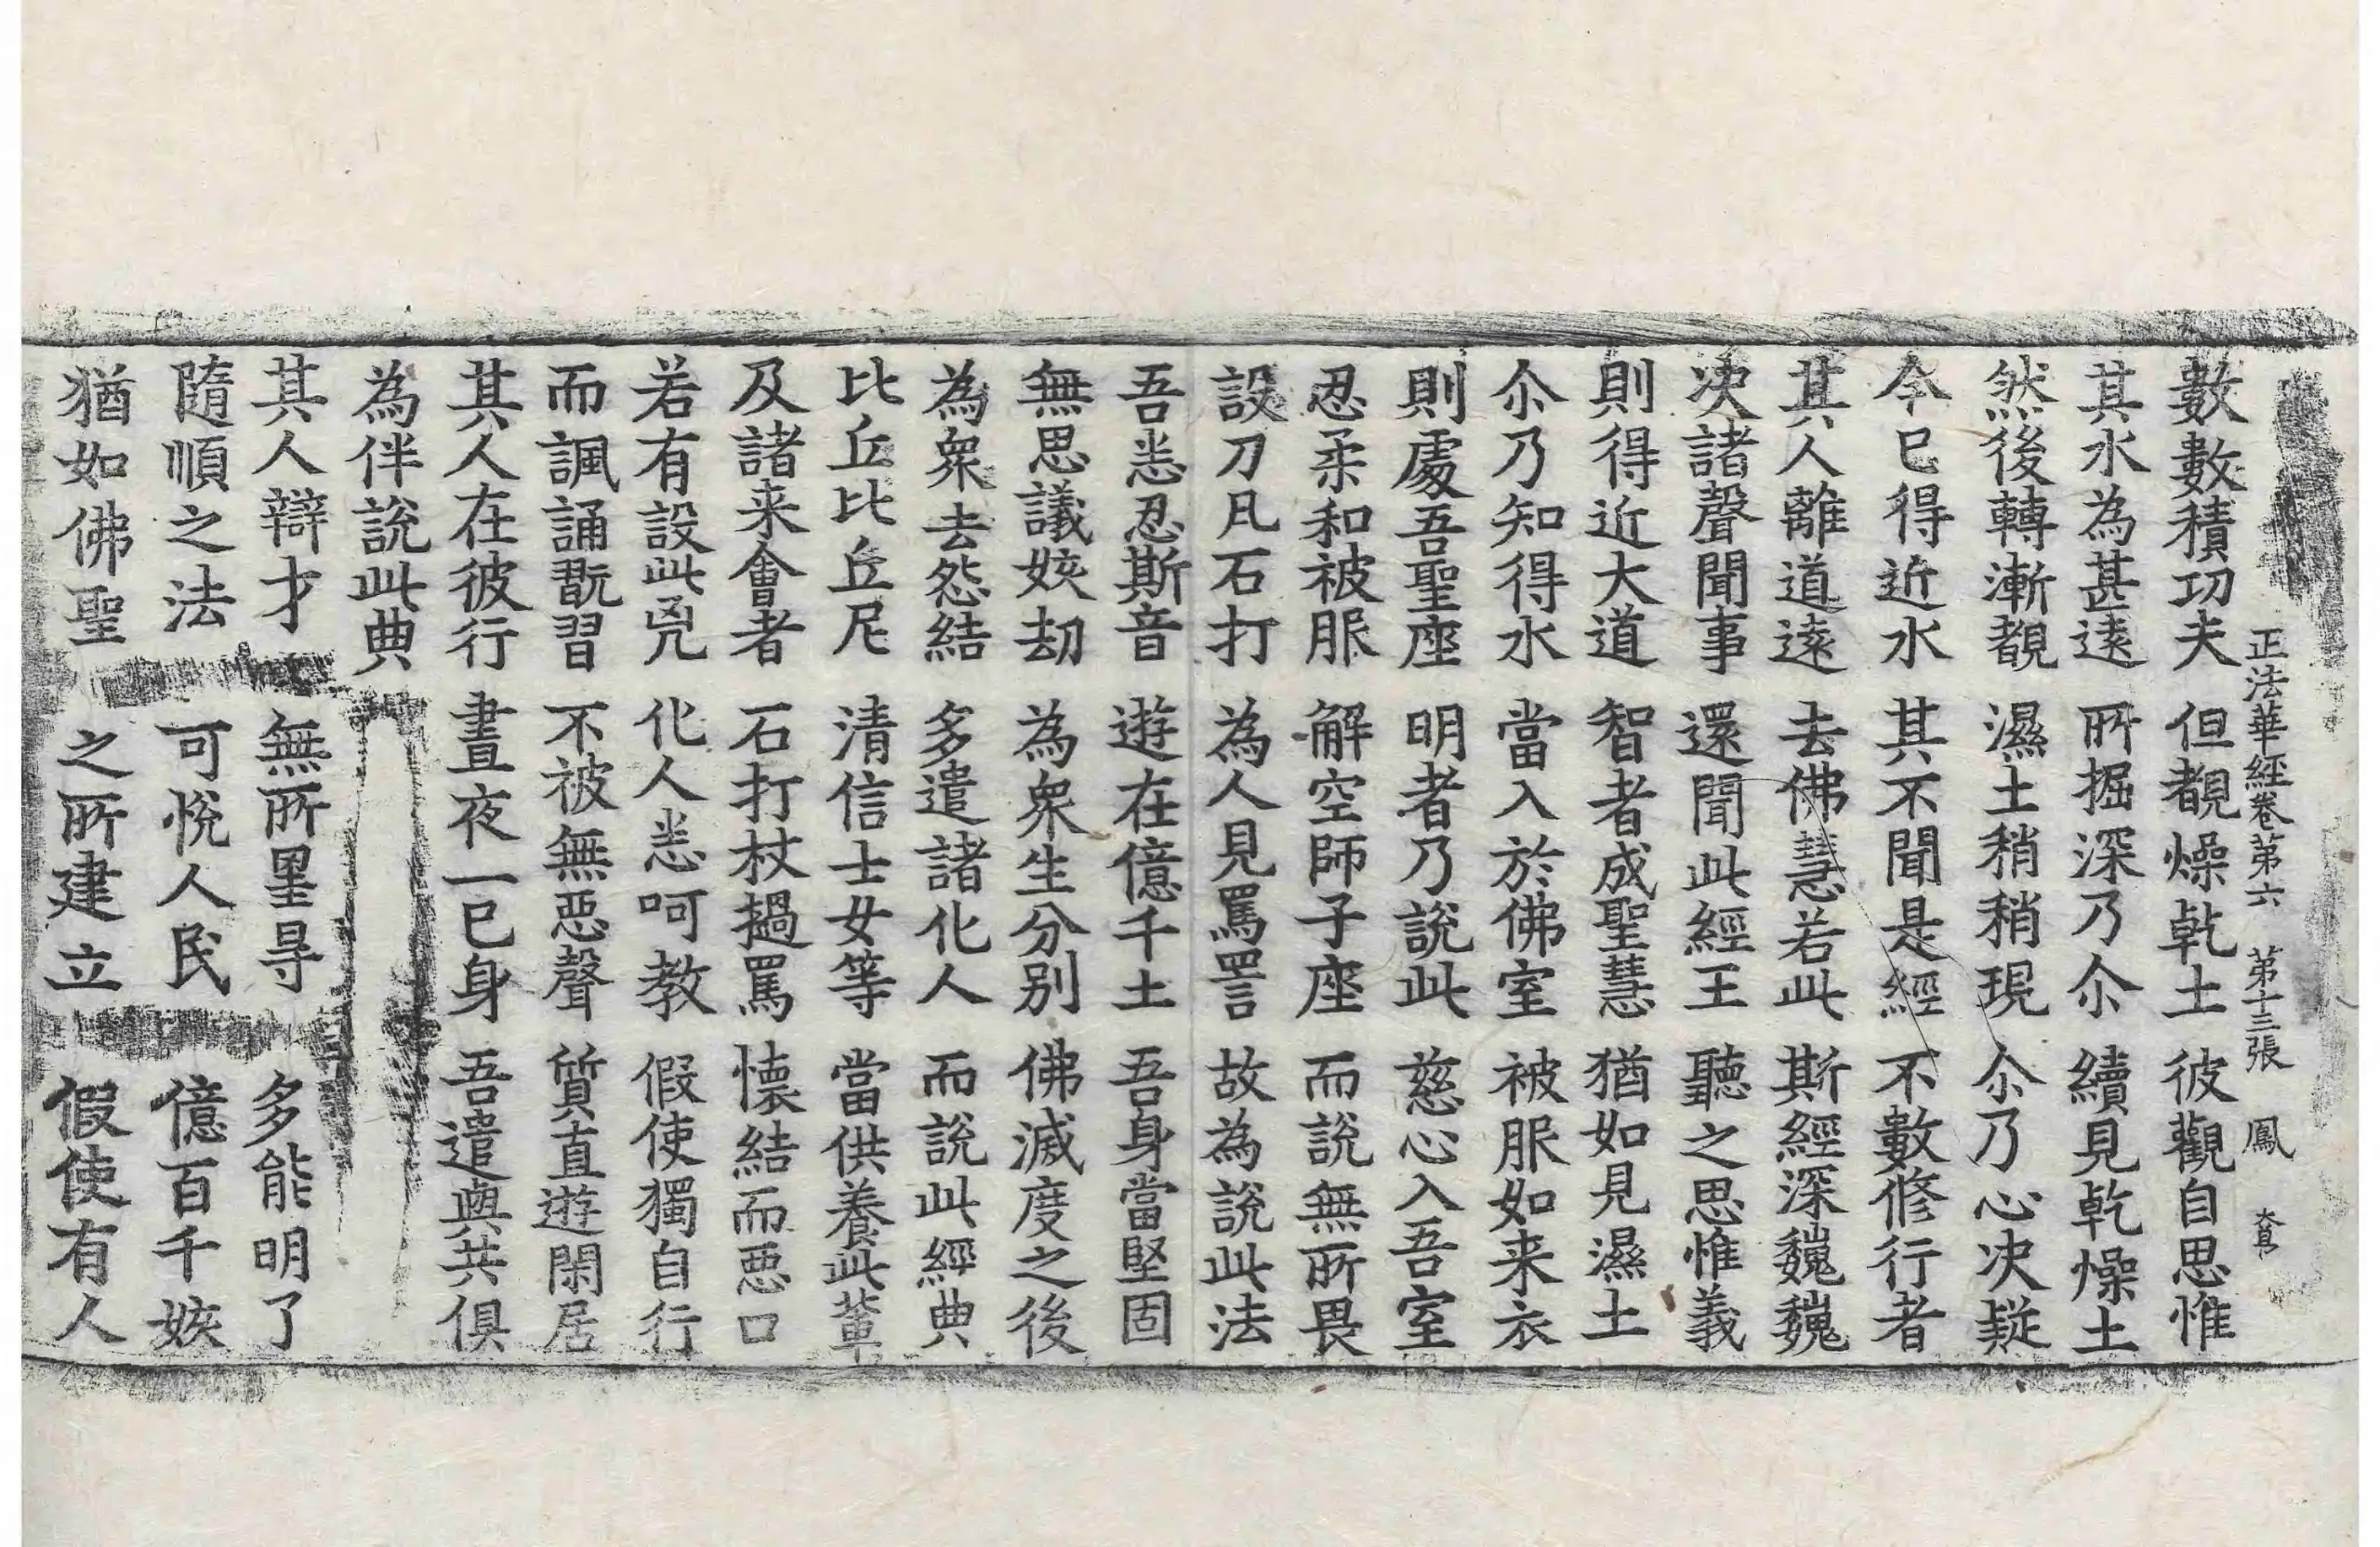 正法華經卷第六 第十三張 鳳
數數積功夫 但覩燥乾土 彼觀自思惟
其水為甚遠 所掘深乃尒 續見乾燥土
然後轉漸覩 濕土稍稍現 尒乃心决疑
今已得近水 其不聞是經 不數修行者
其人離道遠 去佛慧若此 斯經深巍巍
决諸聲聞事 還聞此經王 聽之思惟義
則得近大道 智者成聖慧 猶如見濕土
尒乃知得水 當入於佛室 被服如来衣
則處吾聖座 明者乃說此 慈心入吾室
忍柔和被服 解空師子座 而說無所畏
設刀凡石打 為人見罵詈 故為說此法
吾悉忍斯音 遊在億千土 吾身當堅固
無思議姟劫 為衆生分別 佛滅度之後
為衆去怨結 多遣諸化人 而說此經典
比丘比丘尼 清信士女等 當供養此輩
及諸来會者 石打杖撾罵 懐結而惡口
若有設此兇 化人悉呵教 假使獨自行
而諷誦翫習 不被無惡聲 質直遊閑居
其人在彼行 晝夜一已身 吾遣與共俱
為伴說此典
其人辯才 無所罣㝵 多能明了
隨順之法 可悅人民 億百千姟
猶如佛聖 之所建立 假使有人